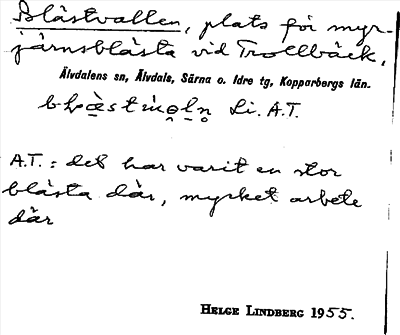 Blästvallen, plats för myr-
järnsblästa vid Trollbäck,
Älvdalens sn, Älvdals, Särna o. Idre tg, Kopparbergs län.
Li. A.T.
A.T.: det har varit en stor
blästa där, mycket arbete
där
HELGE LINDBERG 1955.